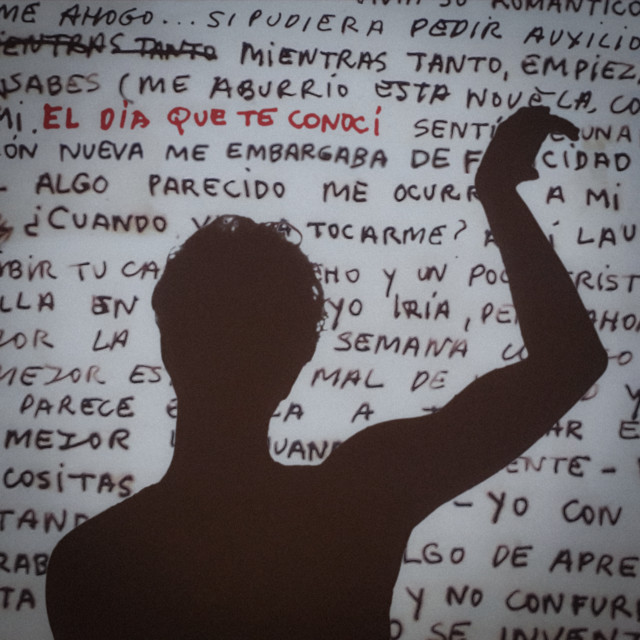 SU ROMÁNTICO
ME AHOGO... SI PUDIERA PEDIR AUXILIO
MIENTRAS TANTO MIENTRAS TANTO, EMPIEZ
SABES (ME ABURRÍO ESTA NOVELA, CO
MI. EL DÍA QUE TE CONOCÍ SENTÍ UNA
ÓN NUEVA ME EMBARGABA DE F CIDAD
- ALGO PARECIDO ME OCURR A MI
¿CUANDO V A TOCARME? A Í LAU
BIR TU CA HO Y UN POC TRIST
LLA EN YO IRÍA, PE AHO
JOR LA SEMANA
MEJOR ES MAL DE Y
PARECE LA A
MEJOR UAN AR E
COSITAS ENTE -
TAND - YO CON
RAB LGO DE APRE
TA Y NO CONFUR
O SE INVENT